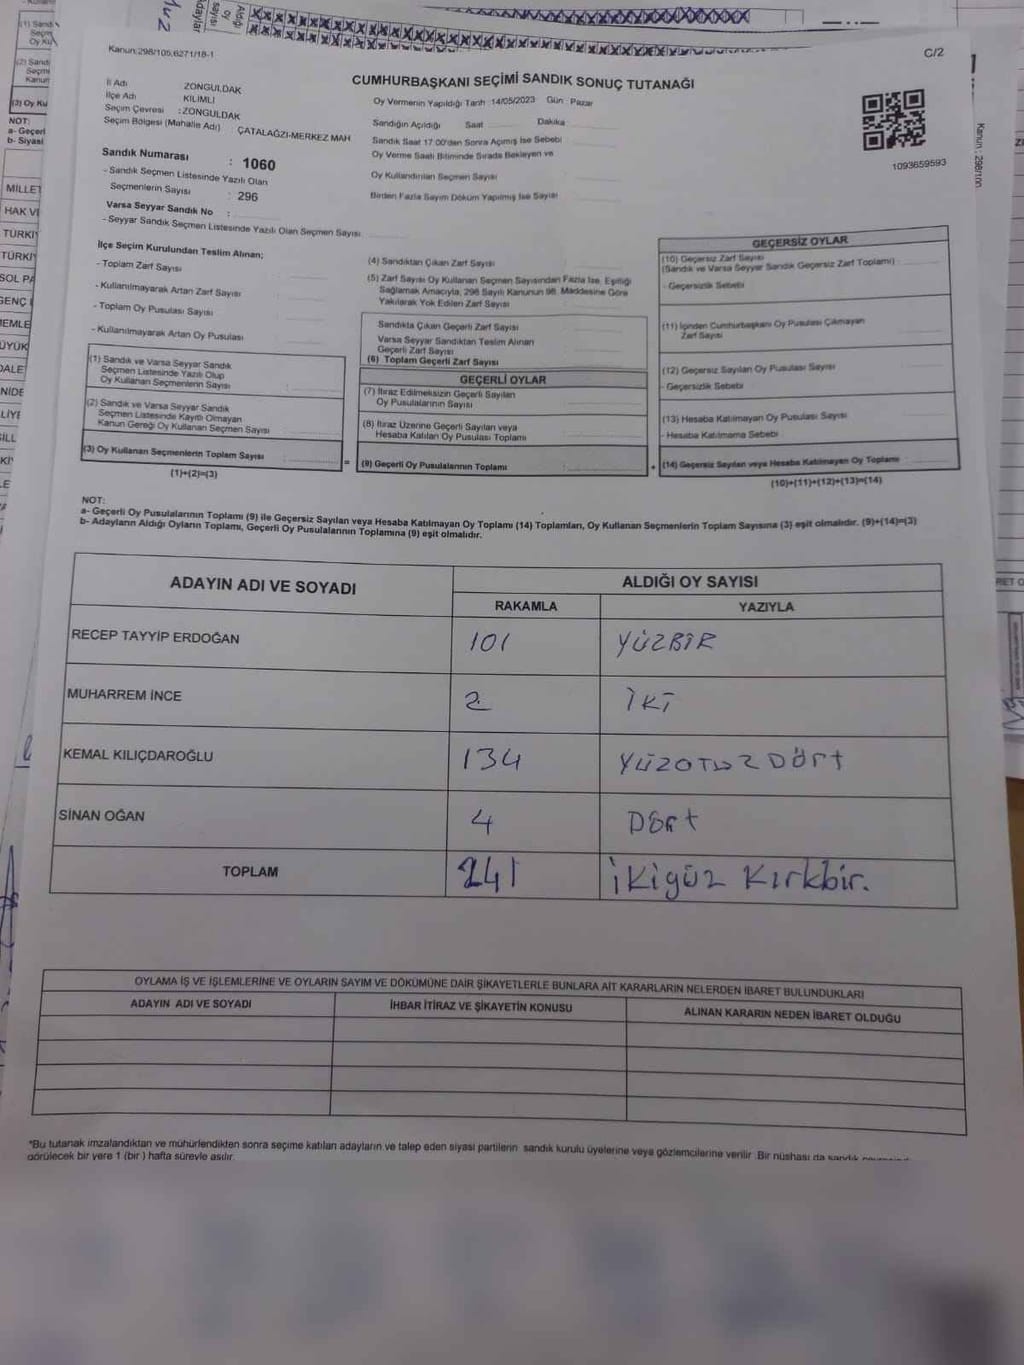 Kanun:298/105,6271/18-1
C/2
CUMHURBAŞKANI SEÇİMİ SANDIK SONUÇ TUTANAĞI
İl Adı ZONGULDAK
İlçe Adı KİLİMLİ
Seçim Çevresi : ZONGULDAK
Seçim Bölgesi (Mahalle Adı) ÇATALAĞZI-MERKEZ MAH
Sandık Numarası : 1060
- Sandık Seçmen Listesinde Yazılı Olan
Seçmenlerin Sayısı : 296
Varsa Seyyar Sandık No :
- Seyyar Sandık Seçmen Listesinde Yazılı Olan Seçmen Sayısı
Oy Vermenin Yapıldığı Tarih :14/05/2023 Gün : Pazar
Sandığın Açıldığı Saat Dakika
Sandık Saat 17:00'den Sonra Açılmış İse Sebebi
Oy Verme Saati Bitiminde Sırada Bekleyen ve
Oy Kullandırılan Seçmen Sayısı
Birden Fazla Sayım Döküm Yapılmış İse Sayısı
1093659593
İlçe Seçim Kurulundan Teslim Alınan;
- Toplam Zarf Sayısı
- Kullanılmayarak Artan Zarf Sayısı
- Toplam Oy Pusulası Sayısı
- Kullanılmayarak Artan Oy Pusulası
(1) Sandık ve Varsa Seyyar Sandık
Seçmen Listesinde Yazılı Olup
Oy Kullanan Seçmenlerin Sayısı
(2) Sandık ve Varsa Seyyar Sandık
Seçmen Listesinde Kayıtlı Olmayan
Kanun Gereği Oy Kullanan Seçmen Sayısı
(3) Oy Kullanan Seçmenlerin Toplam Sayısı
(1)+(2)=(3)
(4) Sandıktan Çıkan Zarf Sayısı
(5) Zarf Sayısı Oy Kullanan Seçmen Sayısından Fazla İse, Eşitliği
Sağlamak Amacıyla, 298 Sayılı Kanunun 98. Maddesine Göre
Yakılarak Yok Edilen Zarf Sayısı
Sandıkta Çıkan Geçerli Zarf Sayısı
Varsa Seyyar Sandıktan Teslim Alınan
Geçerli Zarf Sayısı
(6) Toplam Geçerli Zarf Sayısı
GEÇERLİ OYLAR
(7) İtiraz Edilmeksizin Geçerli Sayılan
Oy Pusulalarının Sayısı
(8) İtiraz Üzerine Geçerli Sayılan veya
Hesaba Katılan Oy Pusulası Toplamı
= (9) Geçerli Oy Pusulalarının Toplamı :
GEÇERSİZ OYLAR
(10) Geçersiz Zarf Sayısı
(Sandık ve Varsa Seyyar Sandık Geçersiz Zarf Toplamı)
- Geçersizlik Sebebi
(11) İçinden Cumhurbaşkanı Oy Pusulası Çıkmayan
Zarf Sayısı
(12) Geçersiz Sayılan Oy Pusulası Sayısı
- Geçersizlik Sebebi
(13) Hesaba Katılmayan Oy Pusulası Sayısı
- Hesaba Katılmama Sebebi
+ (14) Geçersiz Sayılan veya Hesaba Katılmayan Oy Toplamı
(10)+(11)+(12)+(13)=(14)
NOT:
a- Geçerli Oy Pusulalarının Toplamı (9) ile Geçersiz Sayılan veya Hesaba Katılmayan Oy Toplamı (14) Toplamları, Oy Kullanan Seçmenlerin Toplam Sayısına (3) eşit olmalıdır. (9)+(14)=(3)
b- Adayların Aldığı Oyların Toplamı, Geçerli Oy Pusulalarının Toplamına (9) eşit olmalıdır.
ADAYIN ADI VE SOYADI ALDIĞI OY SAYISI
RAKAMLA YAZIYLA
RECEP TAYYİP ERDOĞAN 101 YÜZBİR
MUHARREM İNCE 2 İKİ
KEMAL KILIÇDAROĞLU 134 YÜZOTUZDÖRT
SİNAN OĞAN 4 DÖRT
TOPLAM 241 İkiyüz Kırkbir.
OYLAMA İŞ VE İŞLEMLERİNE VE OYLARIN SAYIM VE DÖKÜMÜNE DAİR ŞİKAYETLERLE BUNLARA AİT KARARLARIN NELERDEN İBARET BULUNDUKLARI
ADAYIN ADI VE SOYADI İHBAR İTİRAZ VE ŞİKAYETİN KONUSU ALINAN KARARIN NEDEN İBARET OLDUĞU
*Bu tutanak imzalandıktan ve mühürlendikten sonra seçime katılan adayların ve talep eden siyasi partilerin sandık kurulu üyelerine veya gözlemcilerine verilir. Bir nüshası da sandık
görülecek bir yere 1 (bir ) hafta süreyle asılır.